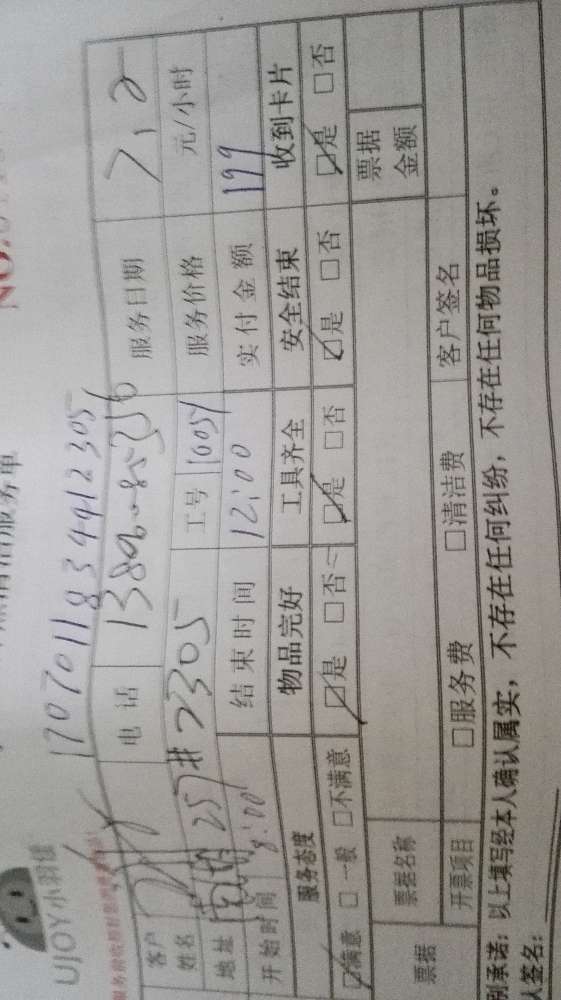 UJOY小羽佳
NO:
1707011834412305
客户姓名 电话 服务日期 7.2
地址 25#2305 工号 10051 服务价格 元/小时
开始时间 8:00 结束时间 12:00 实付金额 199
服务态度 物品完好 工具齐全 安全结束 收到卡片
☑满意 □一般 □不满意 ☑是 □否 ☑是 □否 ☑是 □否 ☑是 □否
票据 票据名称 票据金额
开票项目 □服务费 □清洁费 客户签名
承诺:以上填写经本人确认属实,不存在任何纠纷,不存在任何物品损坏。
签名: